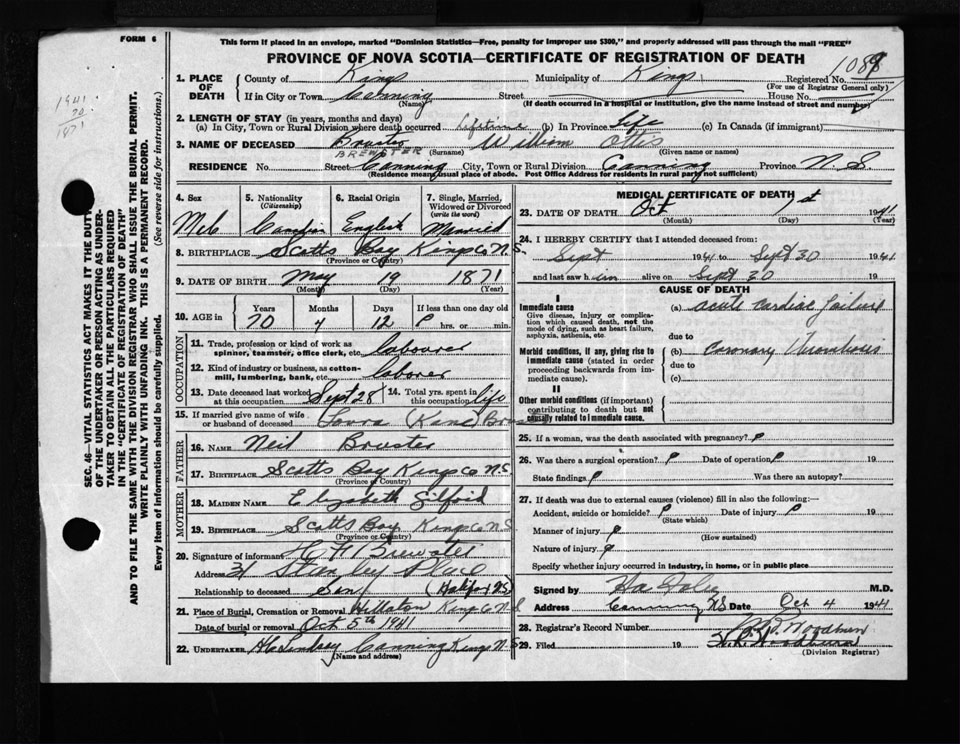 FORM 6
This form if placed in an envelope, marked "Dominion Statistics—Free, penalty for improper use $300," and properly addressed will pass through the mail "FREE"
PROVINCE OF NOVA SCOTIA—CERTIFICATE OF REGISTRATION OF DEATH
1941
70
1871
1. PLACE OF DEATH County of Kings Municipality of Kings Registered No. 1088
(For use of Registrar General only)
If in City or Town Canning Street House No.
(Name) (If death occurred in a hospital or institution, give the name instead of street and number)
2. LENGTH OF STAY (in years, months and days)
(a) In City, Town or Rural Division where death occurred Lifetime (b) In Province Life (c) In Canada (if immigrant)
3. NAME OF DECEASED Bruster William Otis
BREWSTER (Surname) (Given name or names)
RESIDENCE No. Street Canning City, Town or Rural Division Canning Province N.S.
(Residence means usual place of abode. Post Office Address for residents in rural parts not sufficient)
4. Sex 5. Nationality (Citizenship) 6. Racial Origin 7. Single, Married, Widowed or Divorced (write the word)
Male Canadian English Married
8. BIRTHPLACE Scotts Bay Kings Co N.S.
(Province or Country)
9. DATE OF BIRTH May 19 1871
(Month) (Day) (Year)
10. AGE in Years Months Days If less than one day old
70 4 12 hrs. or min.
OCCUPATION
11. Trade, profession or kind of work as spinner, teamster, office clerk, etc. labourer
12. Kind of industry or business, as cotton-mill, lumbering, bank, etc. laborer
13. Date deceased last worked at this occupation Sept 28 14. Total yrs. spent in this occupation life
15. If married give name of wife or husband of deceased (Kane)
FATHER
16. NAME Neil Bruster
17. BIRTHPLACE Scotts Bay Kings Co N.S
(Province or Country)
MOTHER
18. MAIDEN NAME Elizabeth
19. BIRTHPLACE Scotts Bay Kings Co N.S
(Province or Country)
20. Signature of informant Brewster
Address 31 Stanley Place
Relationship to deceased Son (Halifax NS)
21. Place of Burial, Cremation or Removal Hillaton Kings Co N.S
Date of burial or removal Oct 5th 1941
22. UNDERTAKER Canning Kings N.S
(Name and address)
MEDICAL CERTIFICATE OF DEATH
23. DATE OF DEATH Oct 1st 1941
(Month) (Day) (Year)
24. I HEREBY CERTIFY that I attended deceased from:
Sept 1941 to Sept 30 1941
and last saw him alive on Sept 30 19
CAUSE OF DEATH
I
Immediate cause (a) acute cardiac failure
Give disease, injury or complication which caused death, not the mode of dying, such as heart failure, asphyxia, asthenia, etc.
due to
Morbid conditions, if any, giving rise to immediate cause (stated in order proceeding backwards from immediate cause). (b) Coronary Thrombosis
due to
(c)
II
Other morbid conditions (if important) contributing to death but not causally related to immediate cause.
25. If a woman, was the death associated with pregnancy?
26. Was there a surgical operation? Date of operation 19
State findings Was there an autopsy?
27. If death was due to external causes (violence) fill in also the following:—
Accident, suicide or homicide? Date of injury 19
(State which)
Manner of injury
(How sustained)
Nature of injury
Specify whether injury occurred in industry, in home, or in public place
Signed by M.D.
Address Canning NS Date Oct 4 1941
28. Registrar's Record Number
29. Filed 19 Woodburn
(Division Registrar)
SEC. 46—VITAL STATISTICS ACT MAKES IT THE DUTY
OF THE UNDERTAKER OR PERSON ACTING AS UNDER-
TAKER TO OBTAIN ALL THE PARTICULARS REQUIRED
IN THE "CERTIFICATE OF REGISTRATION OF DEATH"
AND TO FILE THE SAME WITH THE DIVISION REGISTRAR WHO SHALL ISSUE THE BURIAL PERMIT.
WRITE PLAINLY WITH UNFADING INK. THIS IS A PERMANENT RECORD.
Every item of information should be carefully supplied. (See reverse side for Instructions.)